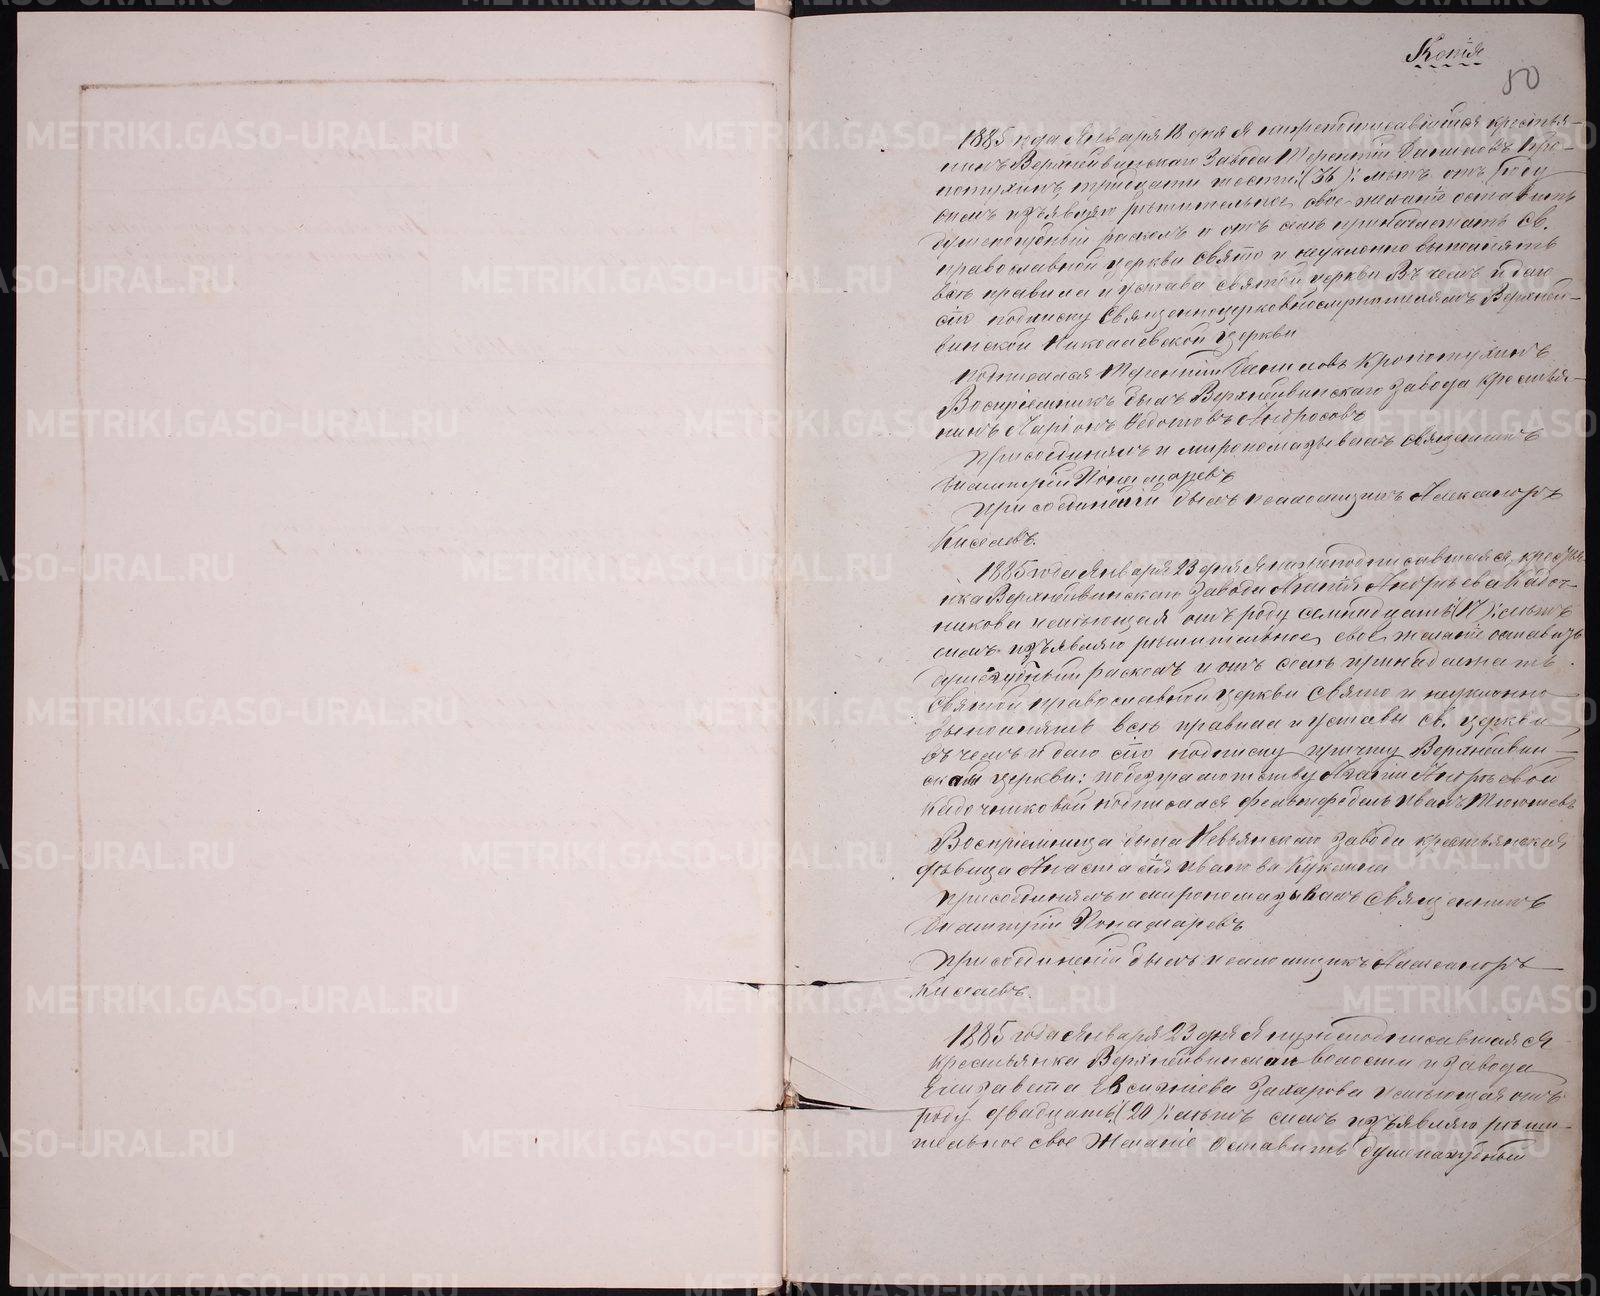 Копія
50
1885 года Января 18 дня Я нижеподписавшійся крестья-
нинъ Верхнейвинскаго Завода Терентій Даниловъ Кро-
потухинъ, тридцати шести (36) лѣтъ отъ роду
симъ изъявляю рѣшительное свое желаніе оставить
душепагубный расколъ и отъ селѣ принадлежать Св.
православной церкви свято и неуклонно выполнять
всѣ правила и устава святой церкви Въ чемъ и даю
сію подписку Священноцерковнослужителямъ Верхней-
винской Николаевской церкви
Подписался Терентій Даниловъ Кропотухинъ
Воспріемникъ былъ Верхнейвинскаго завода крестья-
нинъ Ларіонъ Федотовъ Андросовъ
Присоединялъ и миропомазывалъ священникъ
Димитрій Пономаревъ
При соединеніи былъ псаломщикъ Александръ
Киселевъ.
1885 года Января 23 дня Я нижеподписавшаяся крестья
нка Верхнейвинскаго Завода Агапія Андрѣева Кадоч-
никова имѣющая отъ роду семнадцать (17) лѣтъ
симъ изъявляю рѣшительное свое желаніе оставить
душепагубный расколъ и отъ селѣ принадлежать
Святой православной церкви Свято и неуклонно
выполнять всѣ правила и уставы св. церкви
въ чемъ и даю сію подписку причту Верхнейвин-
ской церкви: по безграмотству Агапіи Андрѣевой
Кадочниковой подписался фельдфебель Иванъ Тютневъ
Воспріемница была Невьянскаго завода крестьянская
дѣвица Анастасія Иванова Кукшина
Присоединялъ и миропомазывалъ Священникъ
Димитрій Пономаревъ
При соединеніи былъ псаломщикъ Александръ
Киселевъ.
1885 года Января 23 дня Я нижеподписавшаяся
Крестьянка Верхнейвинской волости и Завода
Елизавета Евсигніева Захарова имѣющая отъ
роду двадцать (20) лѣтъ симъ изъявляю рѣши-
тельное свое желаніе оставить душепагубный
METRIKI.GASO-URAL.RU